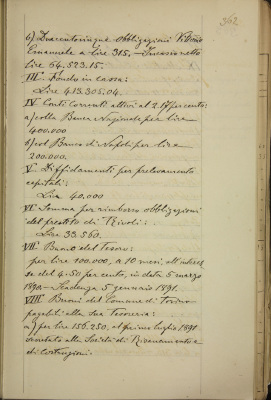 362
b) Duecentocinque obbligazioni Vittorio
Emanuele a lire 315. — Incasso netto
lire 64.523.15.
III.° Fondo in cassa:
Lire 413.305.04.
IV Conti correnti attivi al 2 1/2 per cento:
a) colla Banca Nazionale per lire
400.000
b) col Banco di Napoli per lire
200.000.
V. Diffidamenti per prelevamento
capitali:
Lire 40.000
VI Somma per rimborso obbligazioni
del prestito di Rivoli:
Lire 33.560.
VII. Buono del Tesoro:
per lire 100.000, a 10 mesi, all'interes
se del 4.50 per cento, in data 5 marzo
1890 — Scadenza 5 gennaio 1891.
VIII. Buoni del Comune di Torino
pagabili alla sua Tesoreria:
a) per lire 156.250, al primo luglio 1891
scontato alla Società di Risanamento e
di Costruzioni.